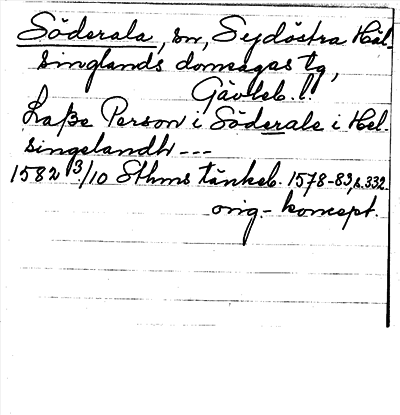 Söderala, sn, Sydöstra Häl-
singlands domsagas tg,
Gävleb. l.
Laße Person i Söderale i Hel-
singelandh ---
1582 3/10 Sthms tänkeb. 1578-83, s. 332.
orig.- koncept.